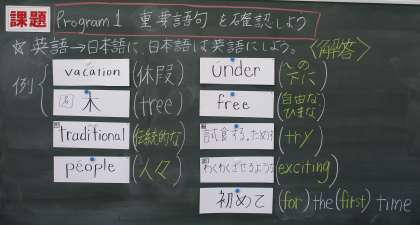 課題 Program 1 重要語句を確認しよう
☆英語→日本語に、日本語は英語にしよう。〈解答〉
例
vacation (休暇)
木 (tree)
traditional (伝統的な)
people (人々)
under (〜の下に)
free (自由な ひまな)
試食する、ためす (try)
わくわくさせるような (exciting)
初めて (for) the (first) time